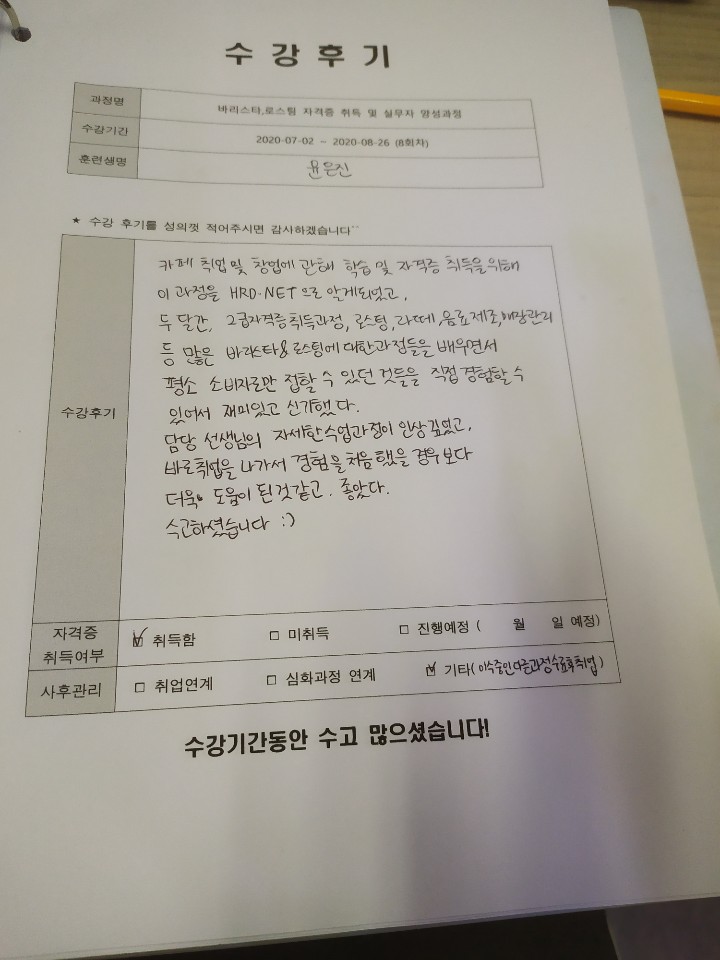 수강후기
과정명 바리스타,로스팅 자격증 취득 및 실무자 양성과정
수강기간 2020-07-02 ~ 2020-08-26 (8회차)
훈련생명 윤은진
★ 수강 후기를 성의껏 적어주시면 감사하겠습니다~~
수강후기
카페 취업 및 창업에 관해 학습 및 자격증 취득을 위해
이 과정을 HRD-NET으로 알게되었고,
두 달간, 2급자격증취득과정, 로스팅, 라떼, 음료제조, 매장관리
등 많은 바리스타&로스팅에 대한과정들을 배우면서
평소 소비자로만 접할 수 있던 것들을 직접 경험할 수
있어서 재미있고 신기했다.
담당 선생님의 자세한수업과정이 인상깊었고,
바로취업을 나가서 경험을 처음했을 경우보다
더욱 도움이 된것같고. 좋았다.
수고하셨습니다 :)
자격증 취득여부 ☑ 취득함 □ 미취득 □ 진행예정 ( 월 일 예정)
사후관리 □ 취업연계 □ 심화과정 연계 ☑ 기타(이수중인다른과정수료후취업)
수강기간동안 수고 많으셨습니다!